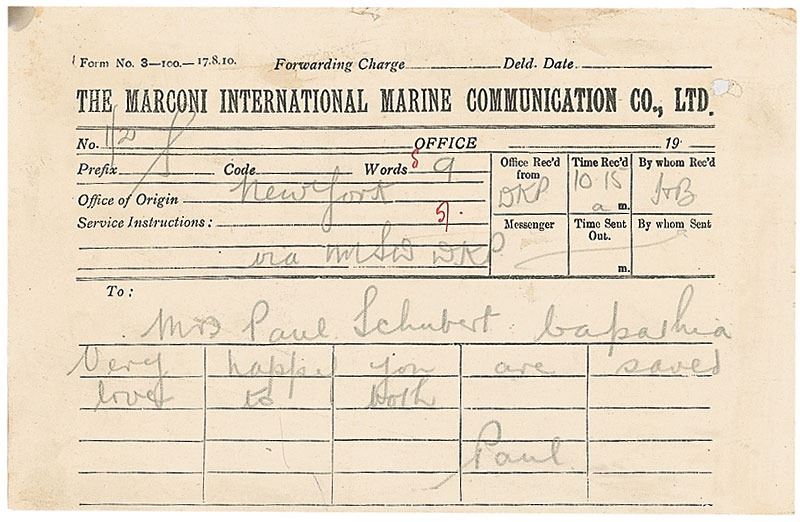 Form No. 3—100.—17.8.10. Forwarding Charge Deld. Date
THE MARCONI INTERNATIONAL MARINE COMMUNICATION CO., LTD.
No. 1/2 OFFICE 19
Prefix S Code Words 9
Office of Origin New York
Service Instructions: 5/.
via MSD DKP
Office Rec'd from DKP
Time Rec'd 10.15 a m.
By whom Rec'd HB
Messenger
Time Sent Out. m.
By whom Sent
To:
Mrs Paul Schubert Capathia
Very happy you are saved
love to both
Paul